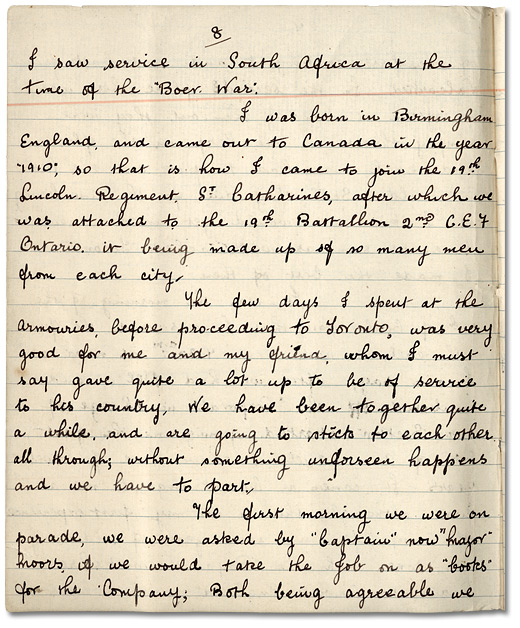 8
I saw service in South Africa at the
time of the "Boer War".
I was born in Birmingham
England, and came out to Canada in the year
"1910", so that is how I came to join the 19th
Lincoln. Regiment. St Catharines, after which we
was attached to the 19th Battallion 2nd C.E.F
Ontario. it being made up of so many men
from each city.
The few days I spent at the
armouries, before proceeding to Toronto, was very
good for me and my friend, whom I must
say gave quite a lot up to be of service
to his country, We have been together quite
a while, and are going to stick to each other
all through; without something unforseen happens
and we have to part,
The first morning we were on
parade, we were asked by "Captain" now "Major"
Moors, if we would take the Job on as "cooks"
for the Company; Both being agreeable we